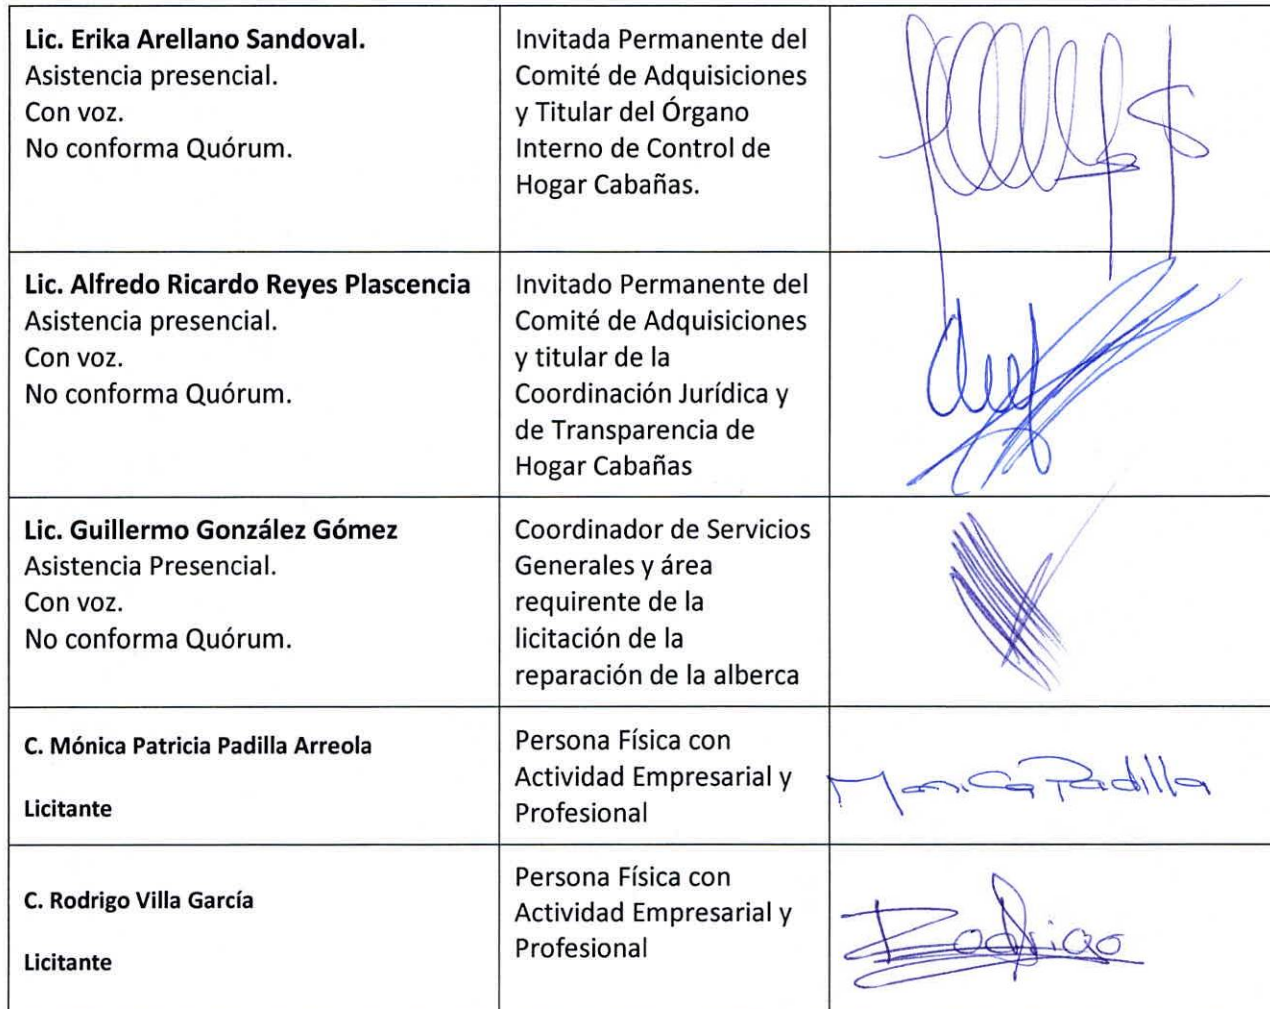 Lic. Erika Arellano Sandoval.
Asistencia presencial.
Con voz.
No conforma Quórum.
Invitada Permanente del
Comité de Adquisiciones
y Titular del Órgano
Interno de Control de
Hogar Cabañas.
Lic. Alfredo Ricardo Reyes Plascencia
Asistencia presencial.
Con voz.
No conforma Quórum.
Invitado Permanente del
Comité de Adquisiciones
y titular de la
Coordinación Jurídica y
de Transparencia de
Hogar Cabañas
Lic. Guillermo González Gómez
Asistencia Presencial.
Con voz.
No conforma Quórum.
Coordinador de Servicios
Generales y área
requirente de la
licitación de la
reparación de la alberca
C. Mónica Patricia Padilla Arreola
Licitante
Persona Física con
Actividad Empresarial y
Profesional
Monica Padilla
C. Rodrigo Villa García
Licitante
Persona Física con
Actividad Empresarial y
Profesional
Rodrigo